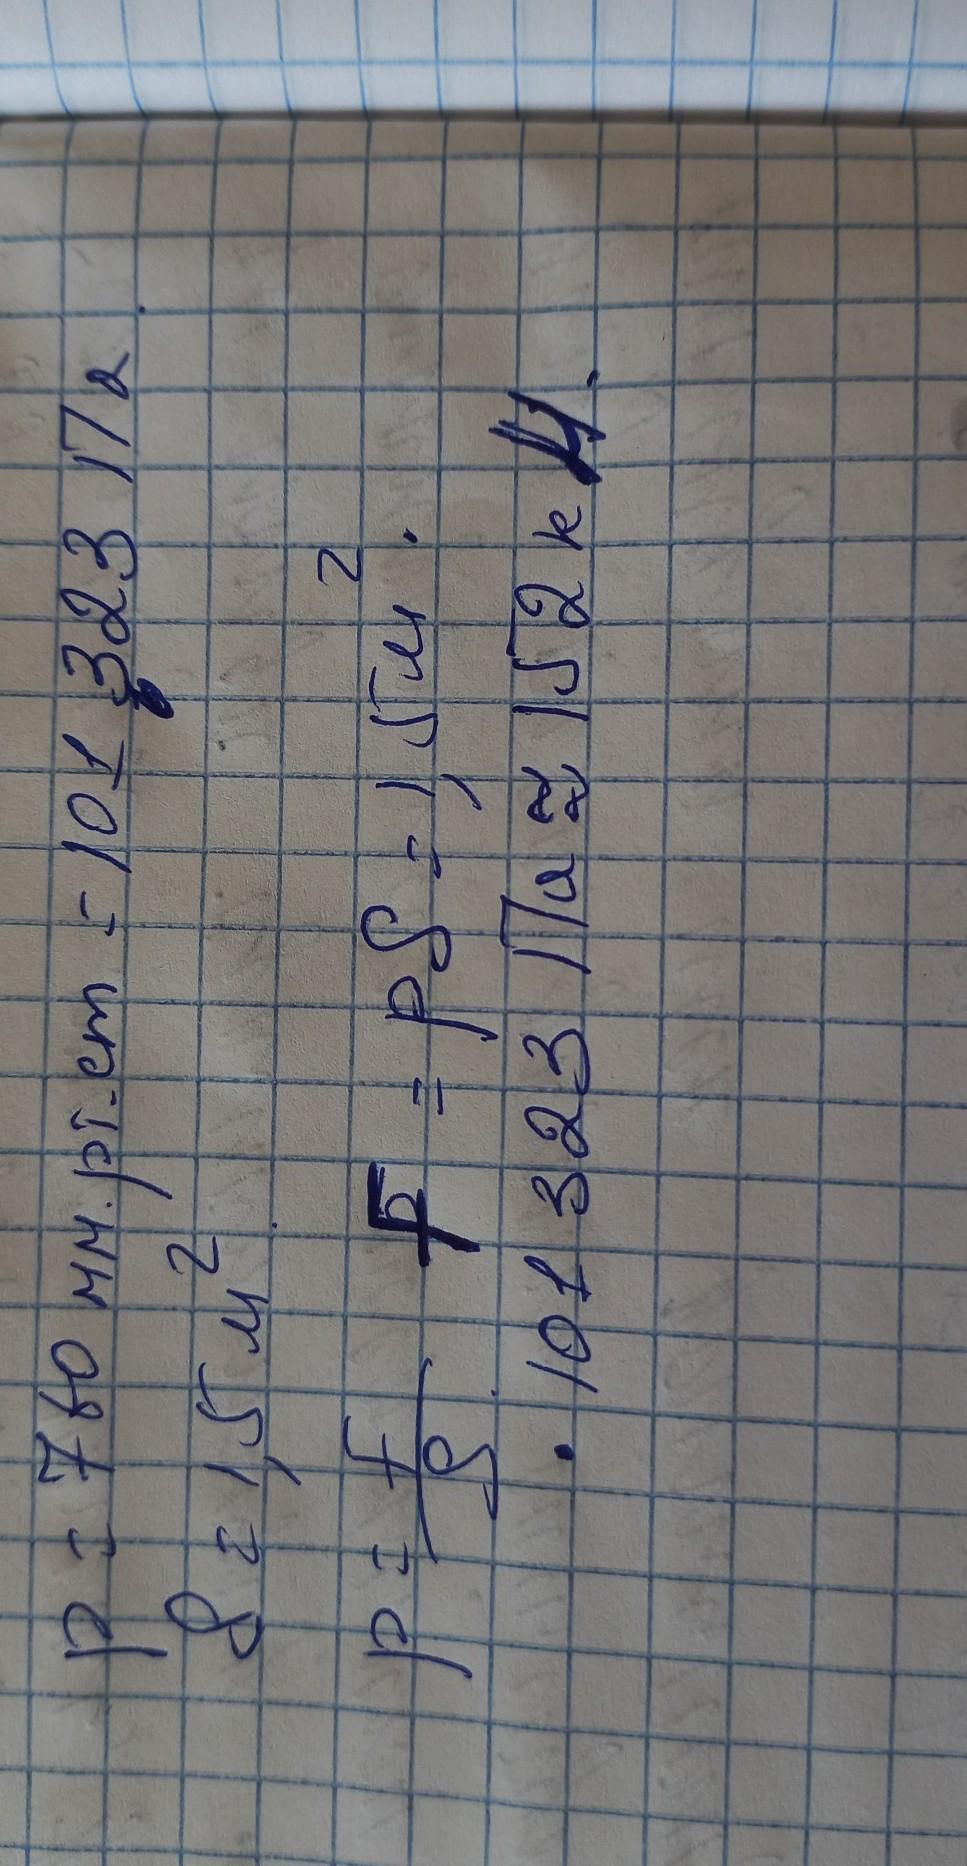 p = 760 мм.рт.ст = 101 323 Па
S = 1,5 м²
p = F/S F = pS = 1,5 м² ·
· 101 323 Па ≈ 152 кН.